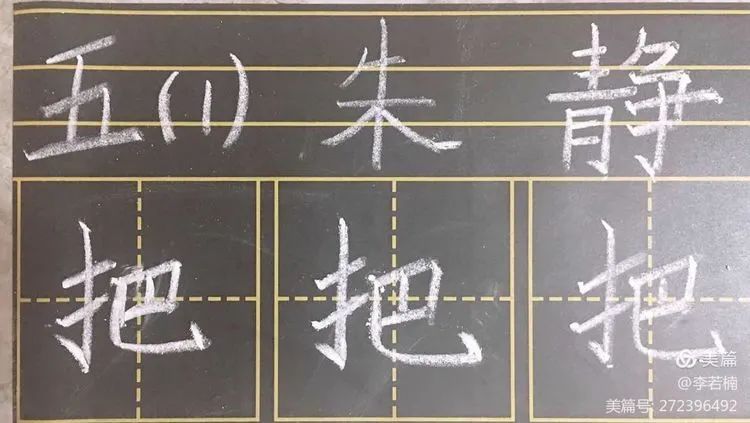 五(1)朱静
把把把
美篇
@李若楠
美篇号: 272396492